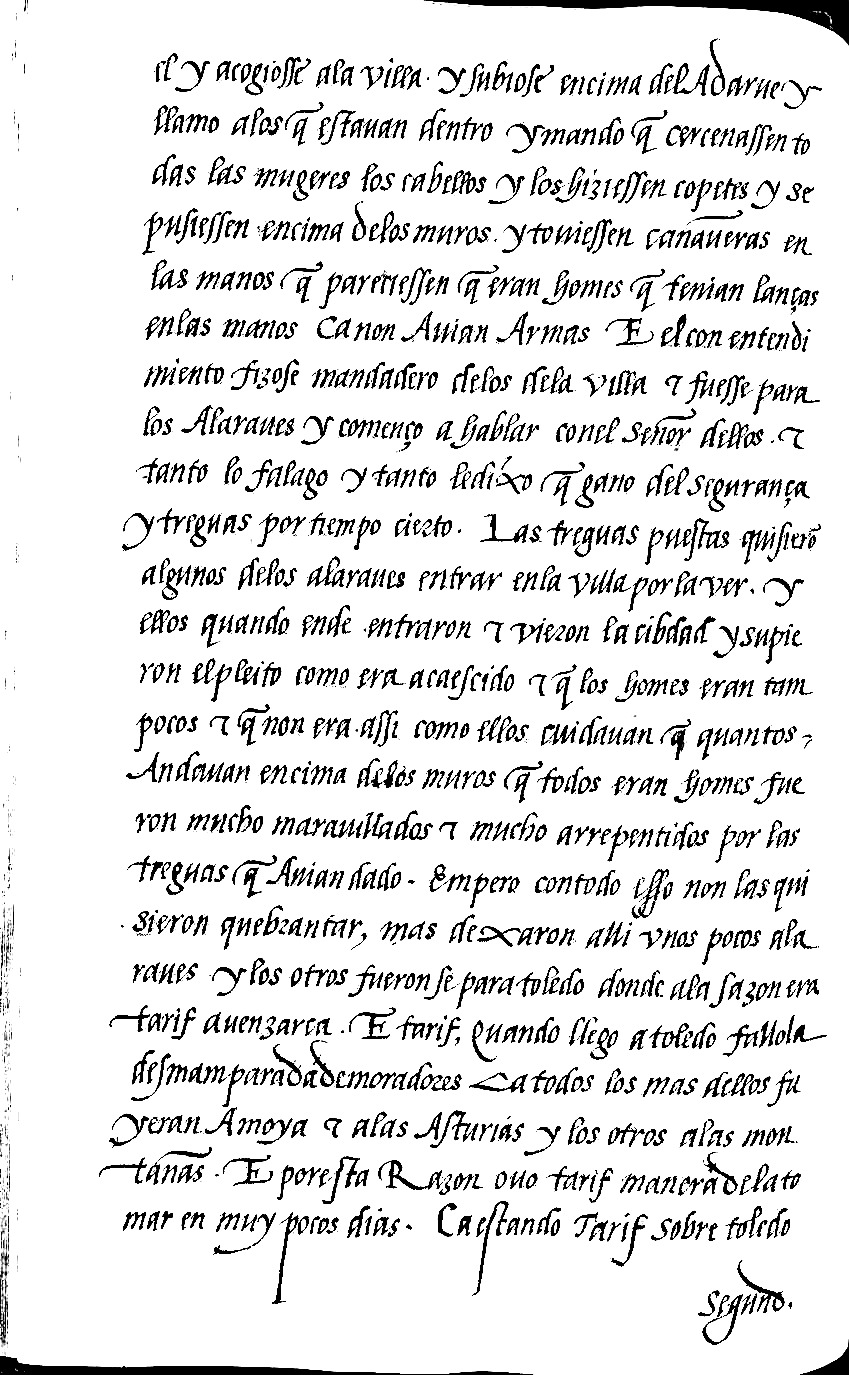 el y acogiosse ala villa. y subiose encima del Adarue y
llamo alos q̃ estauan dentro y mando q̃ cercenassen to
das las mugeres los cabellos y los hiziessen copetes y se
pusiessen encima delos muros. y touiessen cañaueras en
las manos q̃ pareciessen q̃ eran homes q̃ tenian lanças
enlas manos Ca non Auian Armas E el con entendi
miento fizose mandadero delos dela villa ⁊ fuesse para
los Alaraues y començo a hablar conel Señor dellos. ⁊
tanto lo falago y tanto ledixo q̃ gano del Segurança
y treguas por tiempo cierto. Las treguas puestas quisierõ
algunos delos alaraues entrar enla villa por la ver. y
ellos quando ende entraron ⁊ vieron la cibdad y supie
ron el pleito como era acaescido ⁊ q̃ los homes eran tam
pocos ⁊ q̃ non era assi como ellos cuidauan q̃ quantos,
Andauan encima delos muros q̃ todos eran homes fue
ron mucho marauillados ⁊ mucho arrepentidos por las
treguas q̃ Auian dado. Empero contodo esso non las qui
sieron quebrantar, mas dexaron alli vnos pocos ala
raues y los otros fueronse para toledo donde ala sazon era
tarif auenzarca. E tarif, Quando llego a toledo fallola
desmamparada de moradores Ca todos los mas dellos fu
yeran Amoya ⁊ alas Asturias y los otros alas mon
tañas. E por esta Razon ouo tarif manera dela to
mar en muy pocos dias. Ca estando Tarif sobre toledo
Segund.